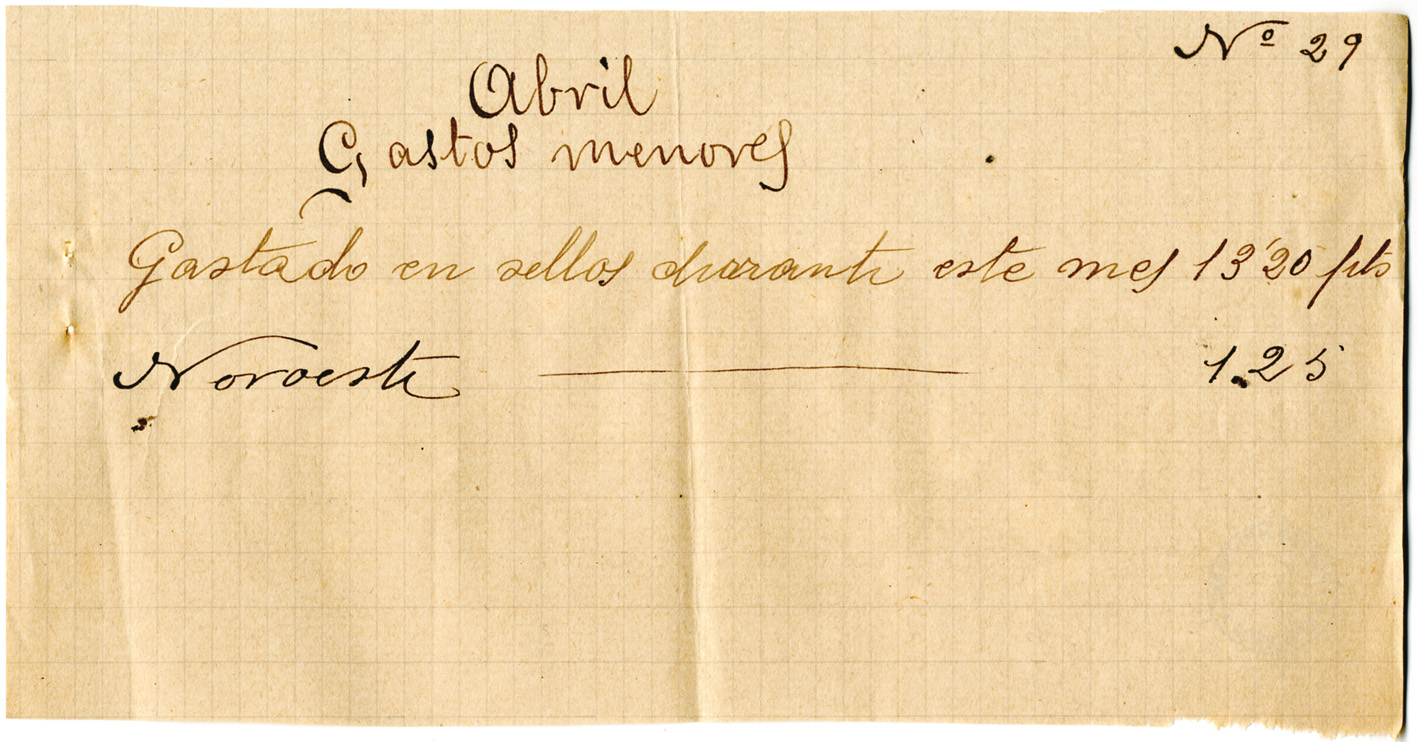 Nº 29
Abril
Gastos menores
Gastado en sellos durante este mes 13'20 pts
Noroeste 1.25